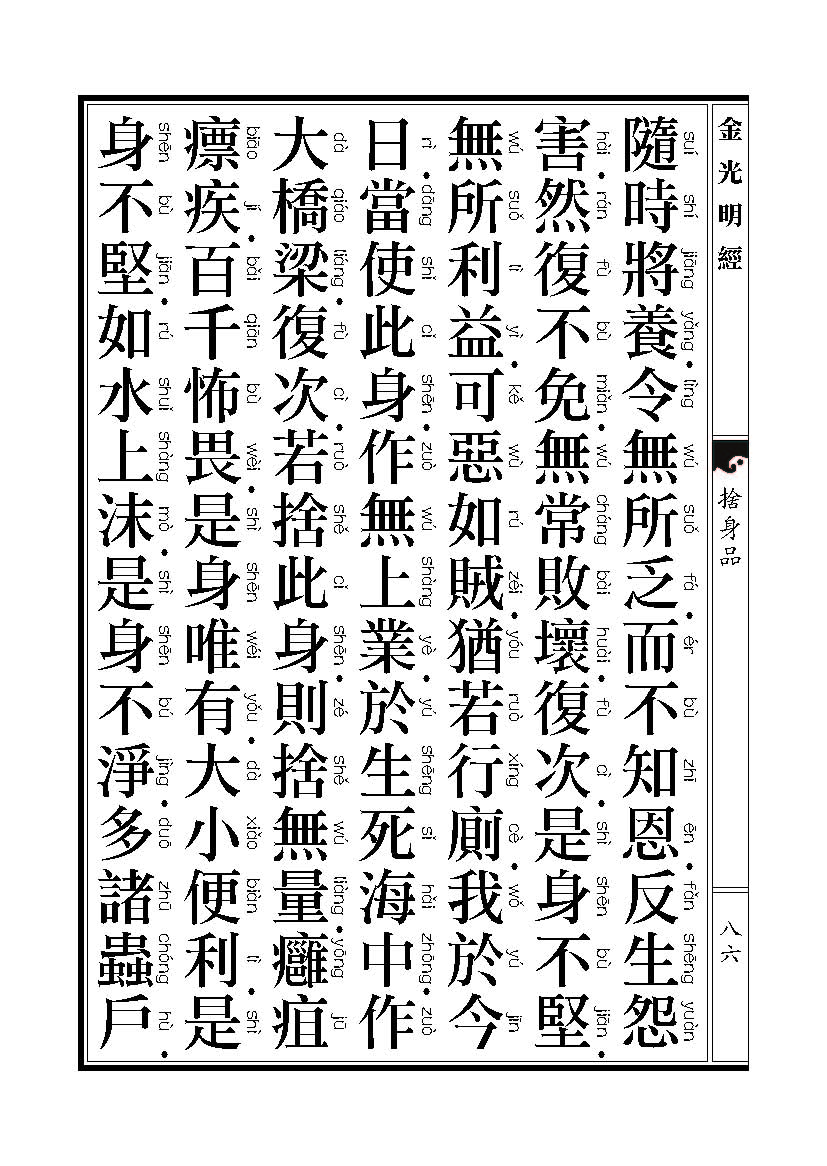 金光明經
捨身品
八六
隨時將養令無所乏而不知恩反生怨
suí shí jiāng yǎng • lìng wú suǒ fá • ér bù zhī ēn • fǎn shēng yuàn
害然復不免無常敗壞復次是身不堅
hài • rán fù bù miǎn • wú cháng bài huài • fù cì • shì shēn bù jiān •
無所利益可惡如賊猶若行廁我於今
wú suǒ lì yì • kě wù rú zéi • yóu ruò xíng cè • wǒ yú jīn
日當使此身作無上業於生死海中作
rì • dāng shǐ cǐ shēn • zuò wú shàng yè • yú shēng sǐ hǎi zhōng • zuò
大橋梁復次若捨此身則捨無量癰疽
dà qiáo liáng • fù cì • ruò shě cǐ shēn • zé shě wú liàng • yōng jū
瘭疾百千怖畏是身唯有大小便利是
biāo jí • bǎi qiān bù wèi • shì shēn wéi yǒu • dà xiǎo biàn lì • shì
身不堅如水上沫是身不淨多諸蟲戶
shēn bù jiān • rú shuǐ shàng mò • shì shēn bù jìng • duō zhū chóng hù •